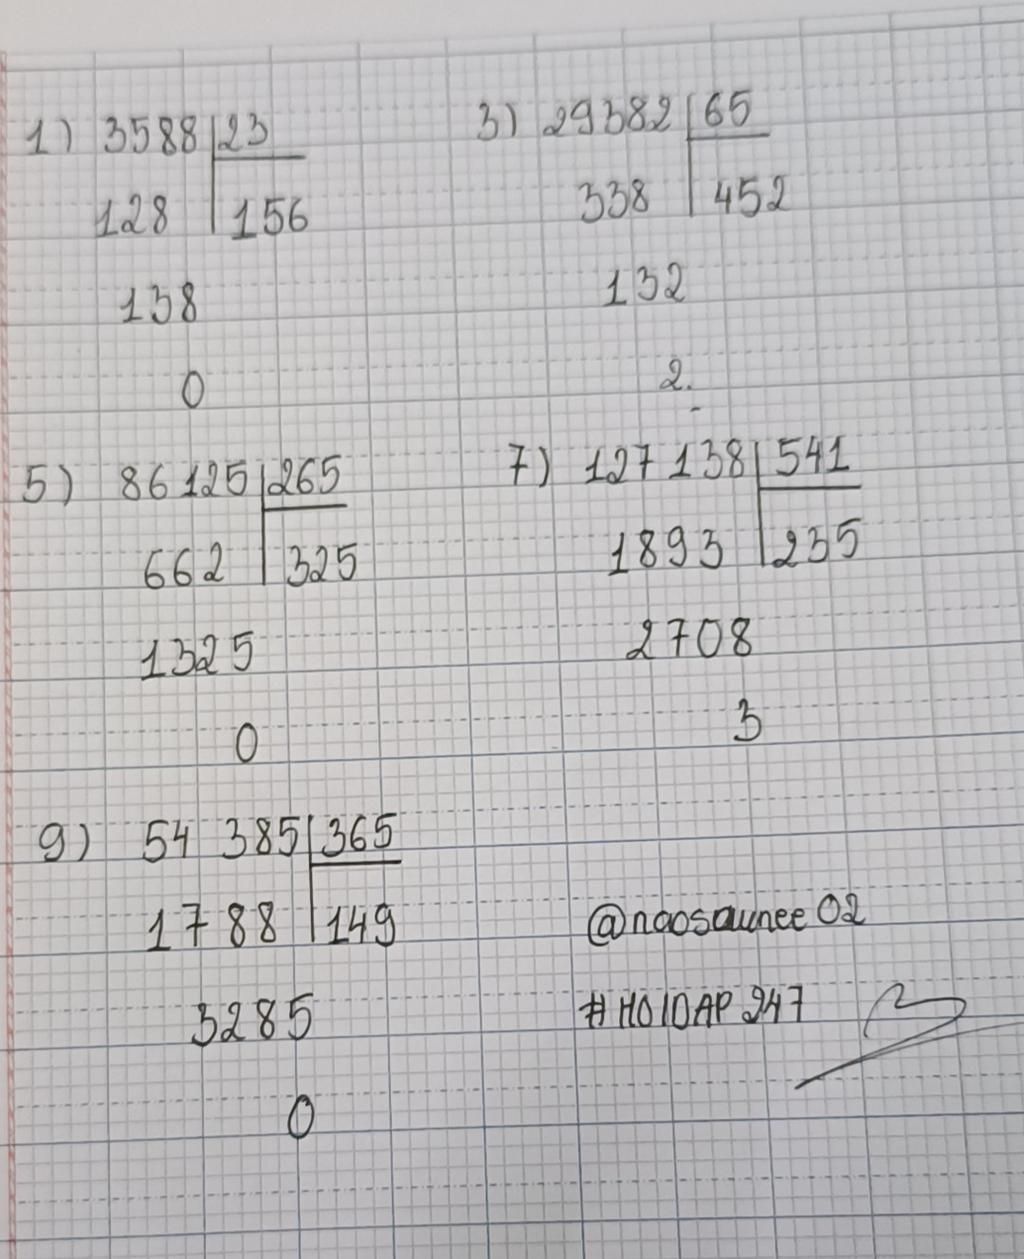 1) 3588 23
128 156
138
0
3) 29382 65
338 452
132
2.
5) 86125 265
662 325
1325
0
7) 127138 541
1893 235
2708
3
9) 54 385 365
1788 149
3285
0
@noosaunee02
#HOIDAP247